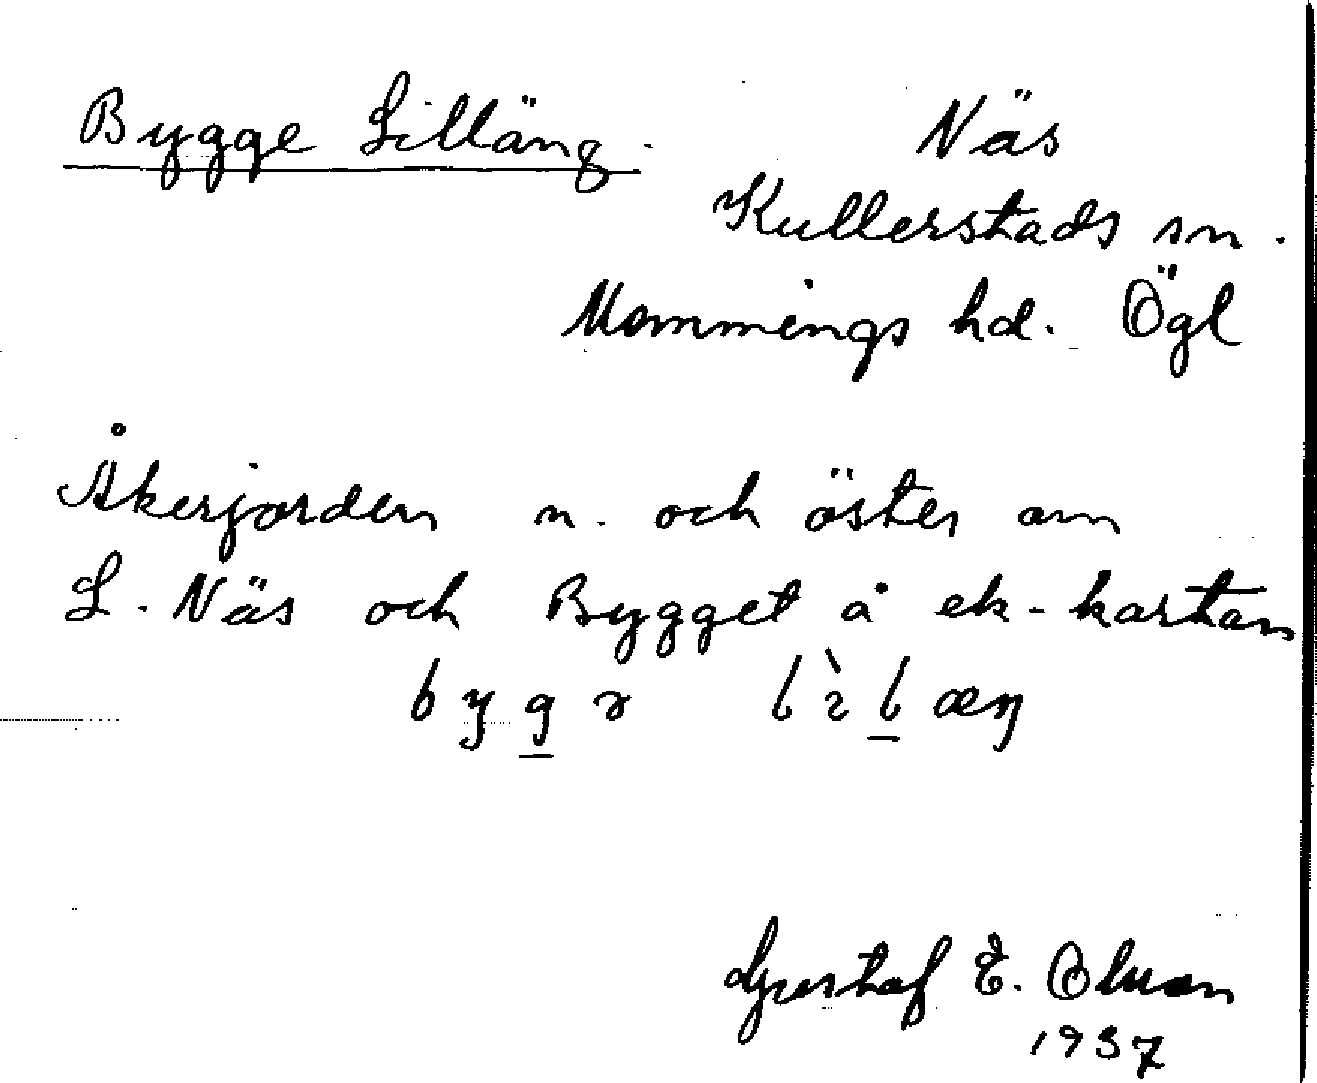 Bygge Lilläng.
Näs
Kullerstads sn.
Memmings hd. Ögl
Åkerjorden n. och öster om
L. Näs och Bygget å ek-kartan
Gustaf E. Olsson
1937